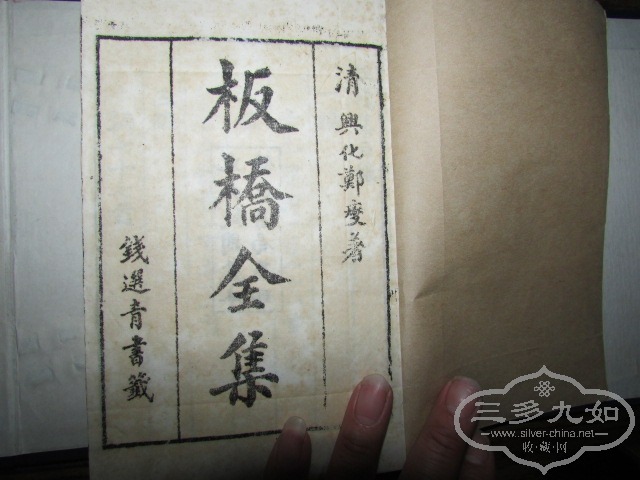 清興化鄭燮著
板橋全集
錢選青書籤
三多九如
www.silver-china.net
收·藏·网